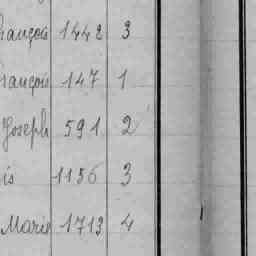 François 1442 3
François 147 1
Joseph 591 2
is 1156 3
Marie 1713 4